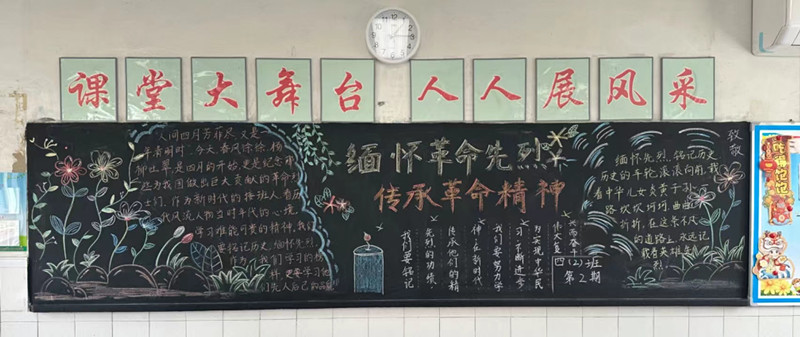 课堂大舞台人人展风采
缅怀革命先烈
传承革命精神
人间四月芳菲尽,又是一
年清明时。今天,春风徐徐,杨
柳
是四月的开始,更是纪念那
些为我国做出巨大贡献的革命烈
士们。作为新时代的接班人,看历
代风流人物立时年代的心境,
学习难能可贵的精神,我们
要铭记历史,缅怀先烈,
作为
我们学习的榜
样,更要学习他
们先人后己的
我们要铭记
先烈的功绩
传承他们的精
神,在新时代
我们要努力学
习,不断进步
为实现中华民
族伟大复
兴而奋斗
四(2)班
第2期
致敬
缅怀先烈,铭记历史
历史的车轮滚滚向前,我
看中华儿女炎黄子孙
路坎坎坷坷,曲曲
折折,在这条不凡
的道路上,永远记
载着英雄